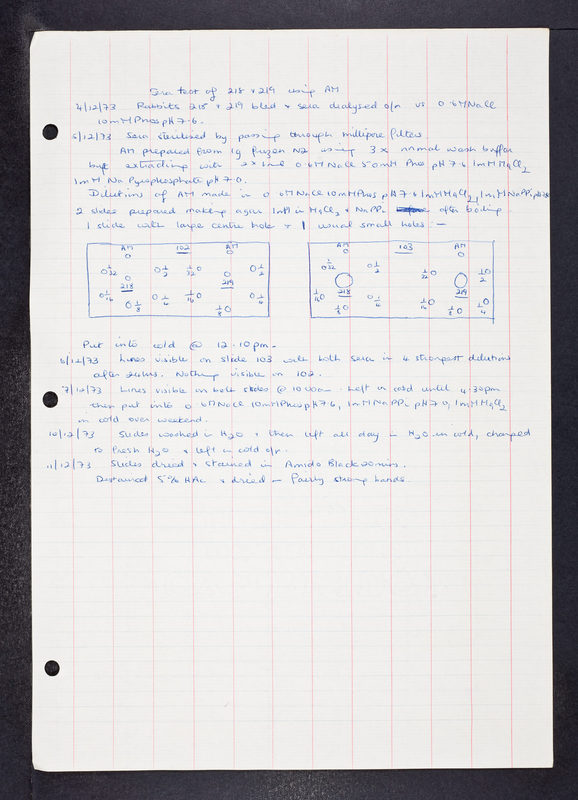 Sera test of 218 + 219 using AM
4/12/73 Rabbits 218 + 219 bled + sera dialysed o/n vs 0.6M NaCl
10mM Phos pH 7.6.
5/12/73 Sera sterilised by passing through millipore filters.
AM prepared from 1g frozen N2 using 3x normal wash buffer
but extracting with 2x vol 0.6M NaCl 50mM Phos pH 7.6 1mM MgCl2
1mM Na Pyrophosphate pH 7.0.
Dilutions of AM made in 0.6M NaCl 10mM Phos pH 7.6 1mM MgCl2, 1mM NaPPi pH 7.0
2 slides prepared making agar 1mM in MgCl2 + NaPPi after boiling.
1 slide with large centre hole + 1 usual small holes :-
AM 102 AM
1/32 1/2 1/32 1/2
218 219
1/16 1/8 1/4 1/16 1/8 1/4
AM 103 AM
1/32 1/2 1/32 1/2
218 219
1/16 1/8 1/4 1/16 1/8 1/4
Put into cold @ 12.10pm.
6/12/73 Lines visible on slide 103 with both sera in 4 strongest dilutions
after 24hrs. Nothing visible on 102.
7/12/73 Lines visible on both slides @ 10.00am. Left in cold until 4.30pm
then put into 0.6M NaCl 10mM Phos pH 7.6, 1mM NaPPi pH 7.0, 1mM MgCl2
in cold over weekend.
10/12/73 Slides washed in H2O + then left all day in H2O in cold, changed
to fresh H2O + left in cold o/n.
11/12/73 Slides dried + stained in Amido Black 20mins.
Destained 5% HAc + dried - fairly strong bands.